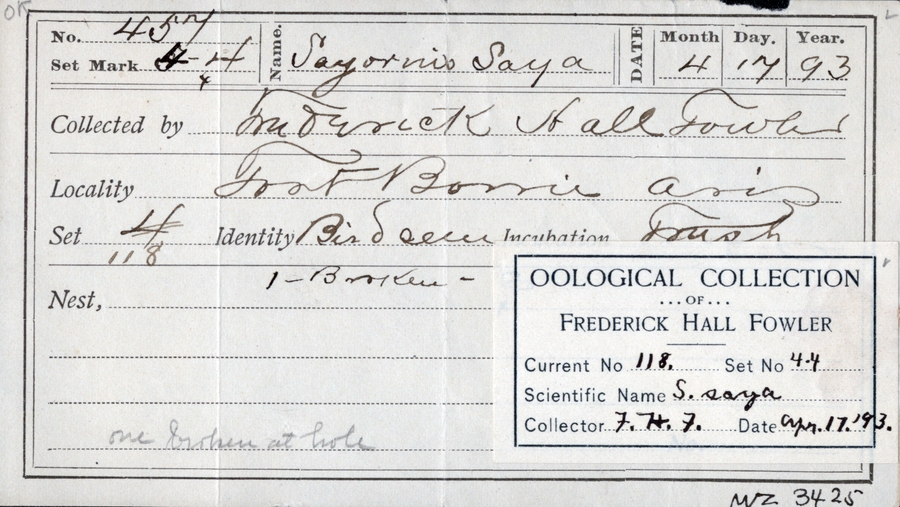 OK
No. 457
Set Mark 4-4
4
Name. Sayornis Saya
DATE Month Day. Year.
4 17 93
Collected by Frederick Hall Fowler
Locality Fort Bowie Ariz
Set 4 Identity Bird seen Incubation Fresh
118
1 - Broken -
Nest,
one broken at hole
OOLOGICAL COLLECTION
...OF...
FREDERICK HALL FOWLER
Current No 118. Set No 4-4
Scientific Name S. saya
Collector F. H. F. Date Apr. 17. '93.
WZ 3425